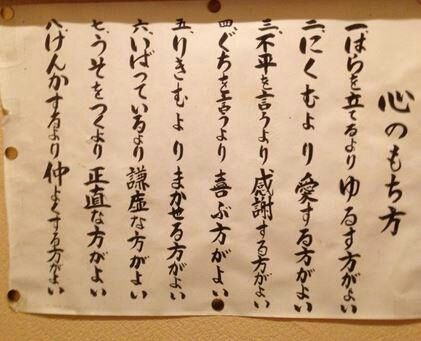 心のもち方
一、はらを立てるより ゆるす方がよい
二、にくむより 愛する方がよい
三、不平を言うより 感謝する方がよい
四、ぐちを言うより 喜ぶ方がよい
五、りきむより まかせる方がよい
六、いばっているより 謙虚な方がよい
七、うそをつくより 正直な方がよい
八、けんかするより 仲よくする方がよい